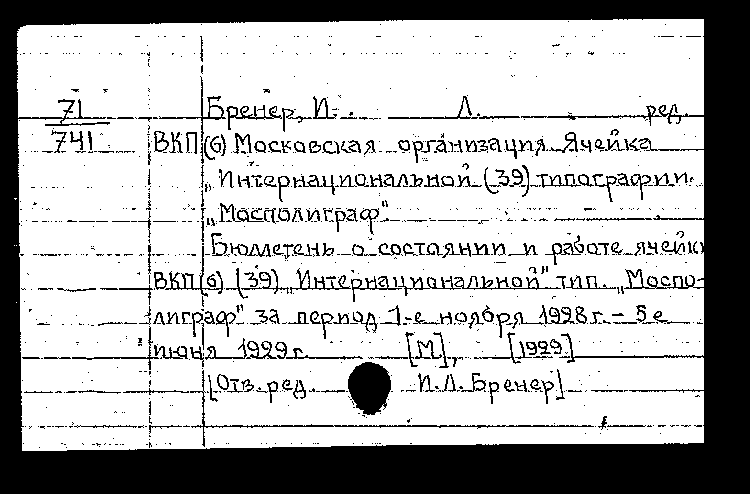 71 Бренер, И. Л. ред.
741 ВКП(б) Московская организация Ячейка
„Интернациональной (39) типографии.
„Мосполиграф".
Бюллетень о состоянии и работе ячейки
ВКП(б) (39) „Интернациональной" тип. „Моспо-
лиграф" за период 1-е ноября 1928 г. – 5 е
июня 1929 г. [М], [1929]
[Отв. ред. И. Л. Бренер]